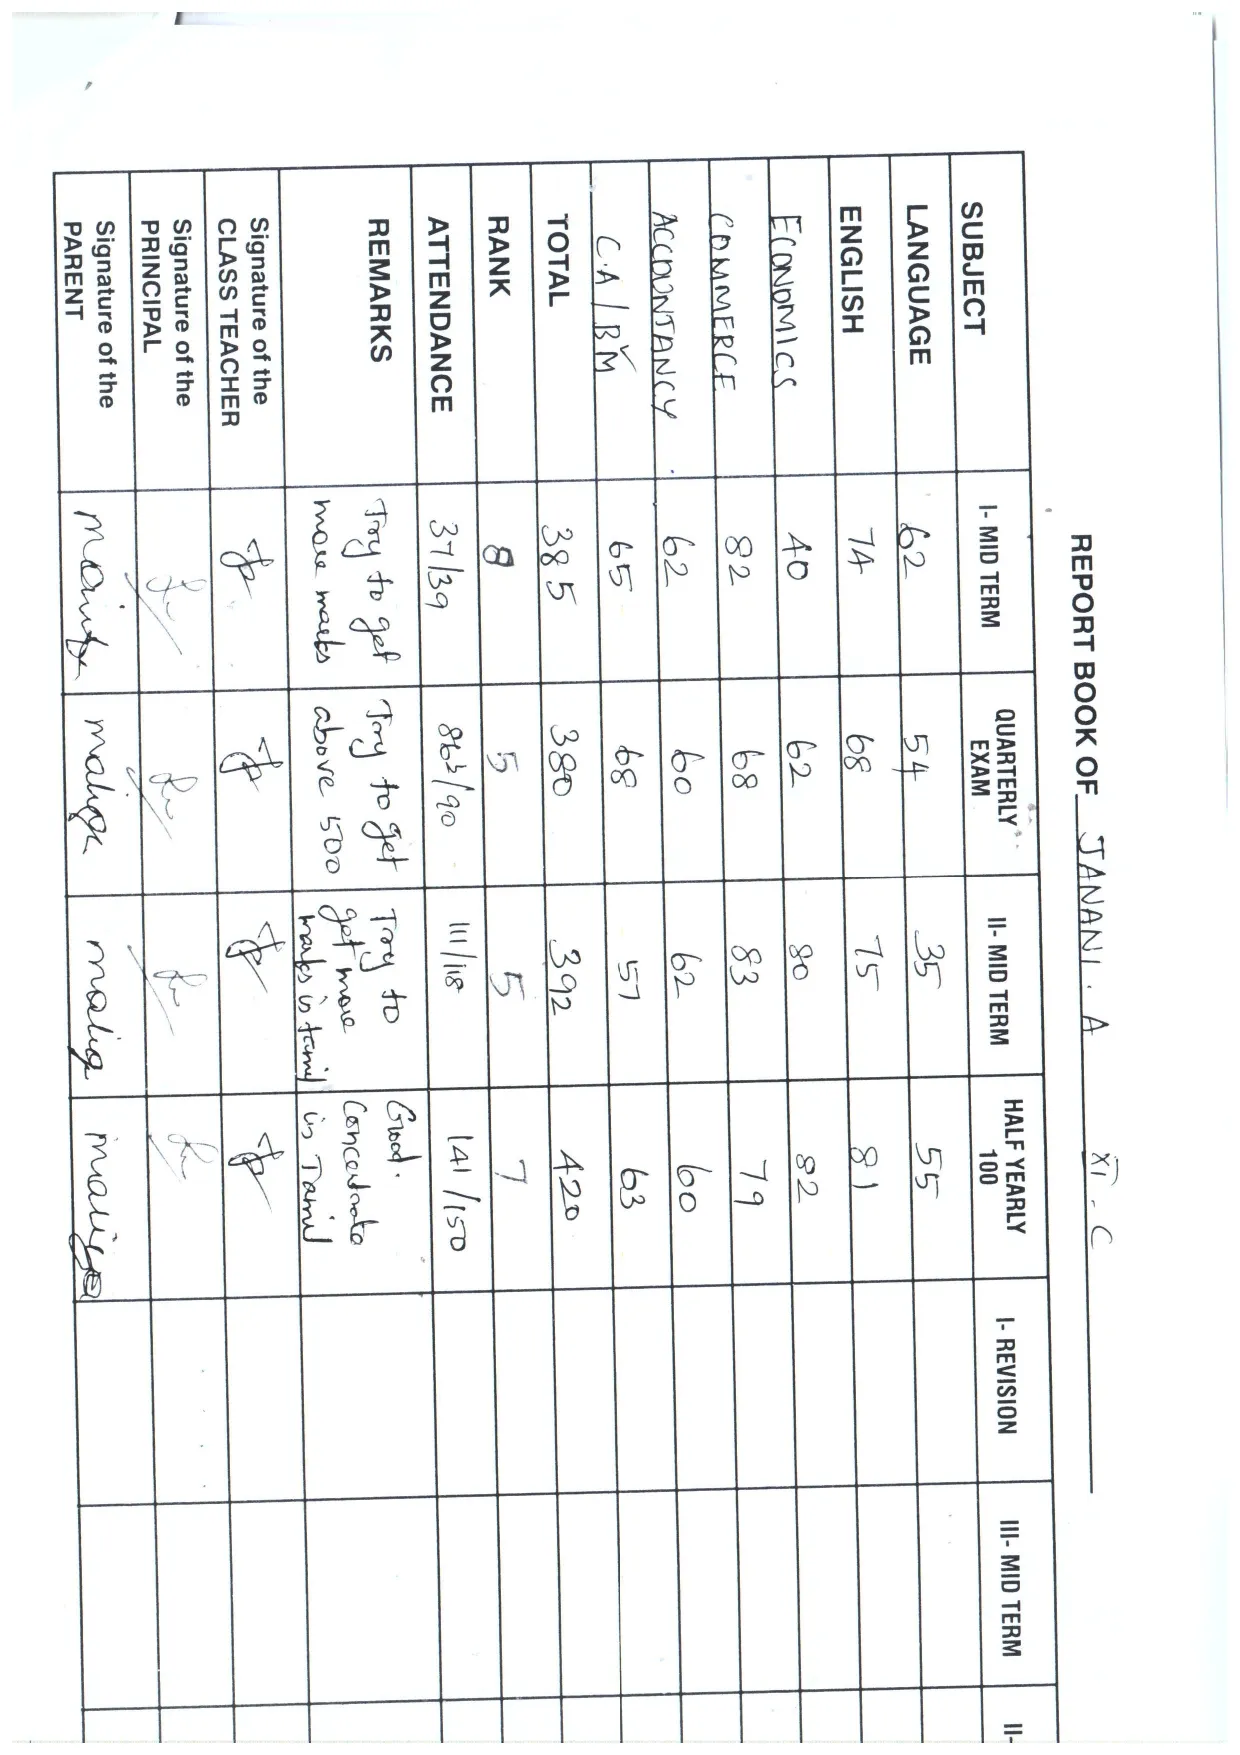 REPORT BOOK OF JANANI. A XI - C
SUBJECT I- MID TERM QUARTERLY EXAM II- MID TERM HALF YEARLY 100 I- REVISION III- MID TERM II-
LANGUAGE 62 54 35 55
ENGLISH 74 68 75 81
ECONOMICS 40 62 80 82
COMMERCE 82 68 83 79
ACCOUNTANCY 62 60 62 60
C.A / B M 65 68 57 63
TOTAL 385 380 392 420
RANK 8 5 5 7
ATTENDANCE 37/39 /90 111/118 141/150
REMARKS Try to get more marks Try to get above 500 Try to get more marks in tamil Good. Concentrate in Tamil
Signature of the CLASS TEACHER
Signature of the PRINCIPAL
Signature of the PARENT